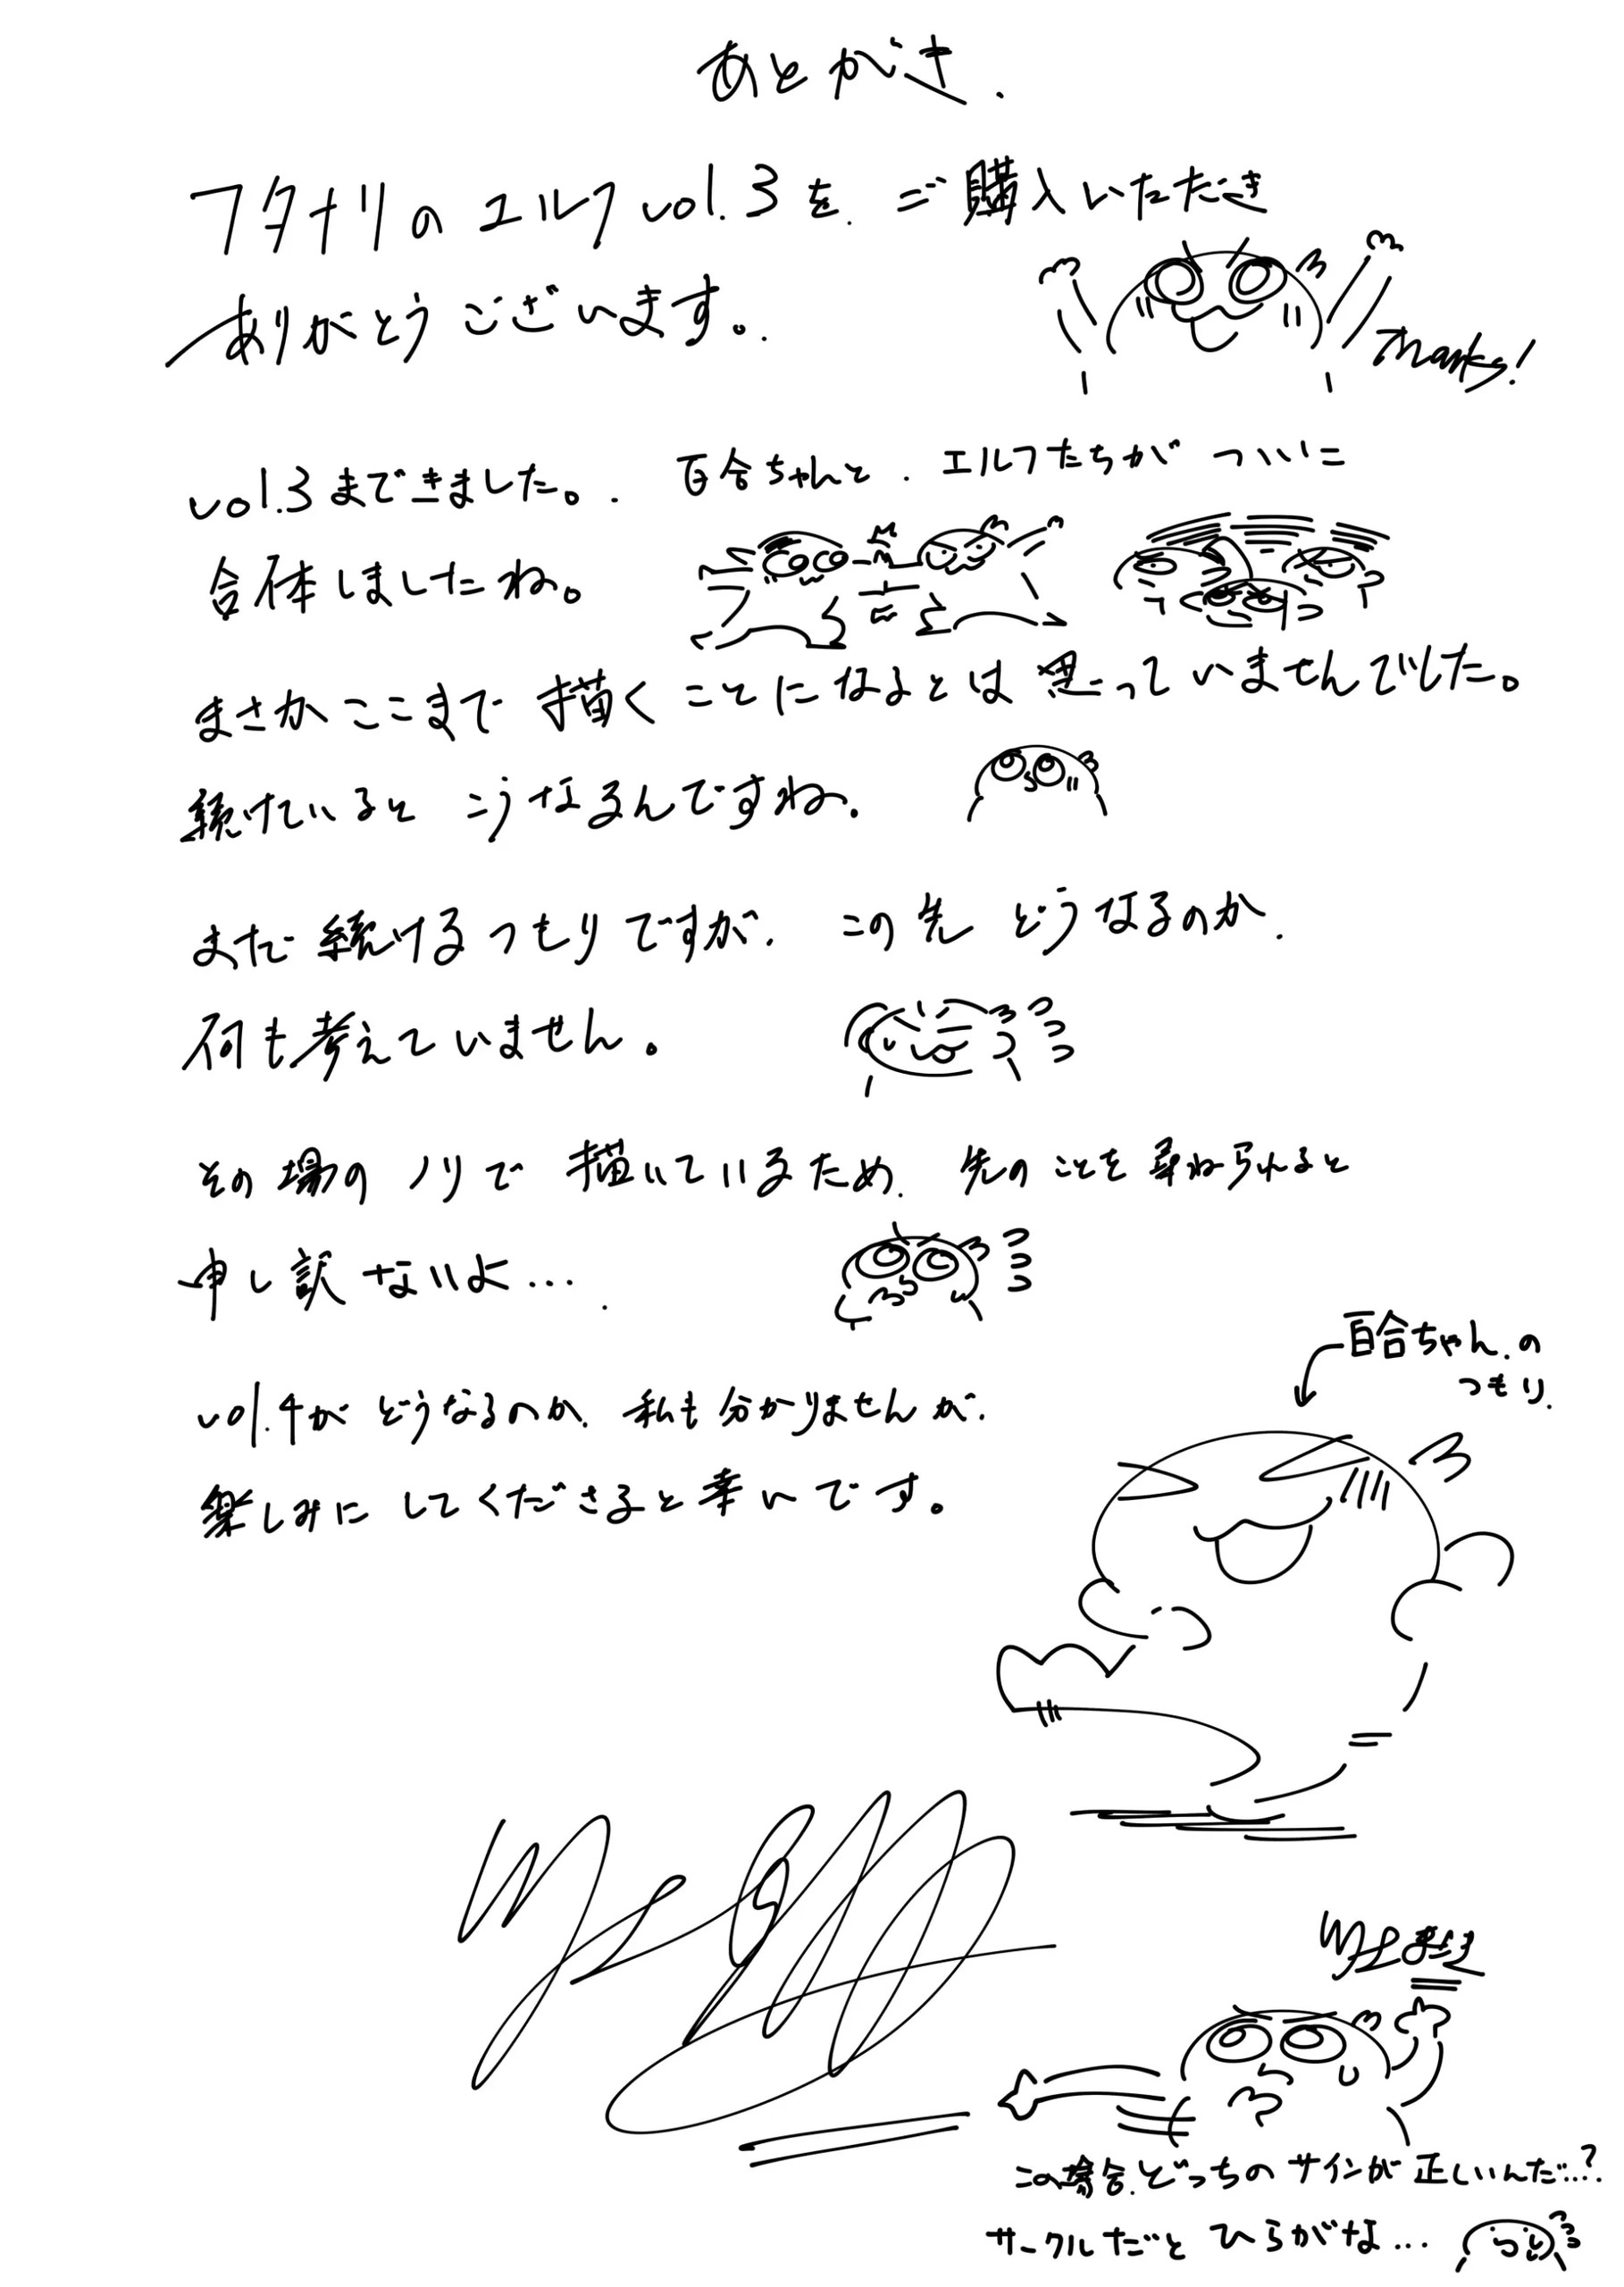 あとがき.
フタナリのエルフvol.3を.ご購入いただき
ありがとうございます。.
Thanks!
vol.3まできました。.百合ちゃんと.エルフたちがついに
合体しましたね。
まさかここまで描くことになるとは思っていませんでした。
続けているとこうなるんですね。
まだ続けるつもりですが.この先どうなるのか.
何も考えていません。
その場のノリで描いているため.先のことを尋ねられると
申し訳ないよ….
vol.4がどうなるのか.私も分かりませんが.
楽しみにしてくださると幸いです。
百合ちゃん.の
つもり.
この場合.どっちのサインが正しいんだ…?
サークルだとひらがな…